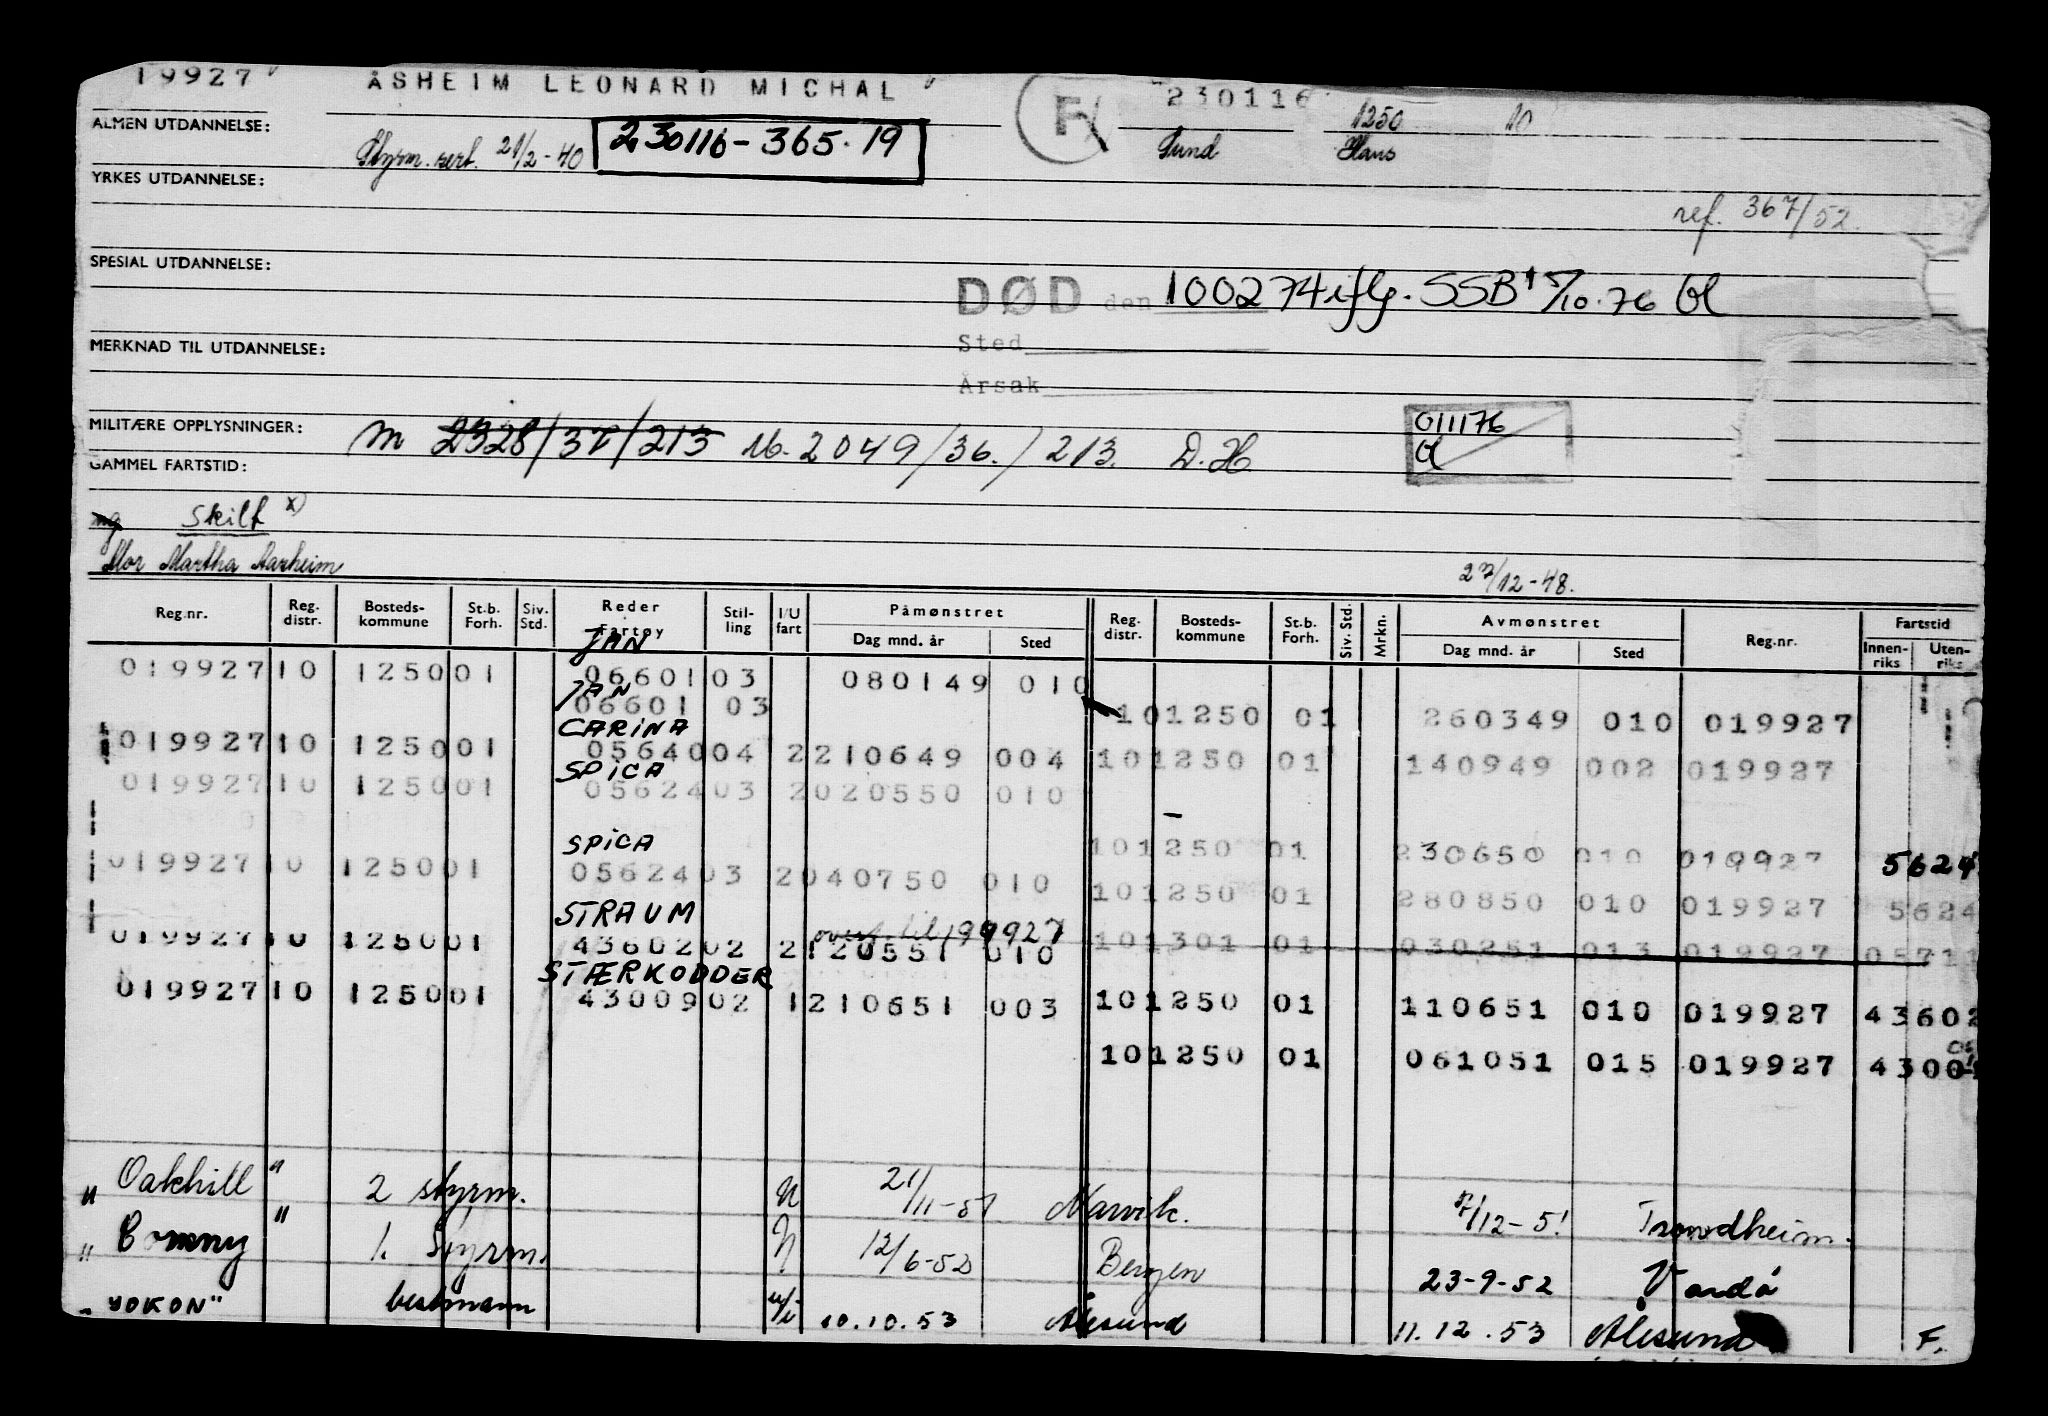 19927 ÅSHEIM LEONARD MICHAL F 230116 1250 10
ALMEN UTDANNELSE: Styrm. sert. 21/2-40 230116-365.19 Sund Haus
YRKES UTDANNELSE:
ref. 367/52.
SPESIAL UTDANNELSE:
DØD den 100274 iflg. SSB 5/10.76
Sted
MERKNAD TIL UTDANNELSE:
Årsak
MILITÆRE OPPLYSNINGER: M 2328/37/213 16. 2049/36./213. D.H 011176
GAMMEL FARTSTID:
Skilt x)
Mor Martha Aarheim
27/12-48.
Reg.nr. Reg. distr. Bosteds-kommune St.b. Forh. Siv. Std. Reder Fartøy Stil-ling I/U fart Påmønstret Dag mnd. år Sted Reg. distr. Bosteds-kommune St.b. Forh. Siv. Std. Mrkn. Avmønstret Dag mnd. år Sted Reg.nr. Fartstid Innen-riks Uten-riks
JAN
019927 10 1250 01 06601 03 080149 010
JAN
06601 03 10 1250 01 260349 010 019927
CARINA
019927 10 1250 01 05640 04 2 210649 004 10 1250 01 140949 002 019927
SPICA
019927 10 1250 01 05624 03 2 020550 010
SPICA 10 1250 01 230650 010 019927 5624
019927 10 1250 01 05624 03 2 040750 010 10 1250 01 280850 010 019927 5624
STRAUM overf. til 199927
019927 10 1250 01 43602 02 2 120551 010 10 1301 01 030251 013 019927 05711
STÆRKODDER
019927 10 1250 01 43009 02 1 210651 003 10 1250 01 110651 010 019927 43602
10 1250 01 061051 015 019927 4300
"Oakhill" 2 styrm. U 21/11-51 Narvik. 7/12-51 Trondheim.
"Bonny" 1. Styrm. U 12/6-52 Bergen 23-9-52 Vardø
"YOKON" bestmann u/i 10.10.53 Ålesund 11.12.53 Ålesund F.